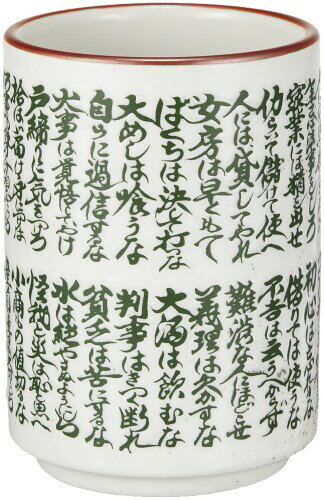 家業には精を出せ
働いて儲けて使へ
人には貸してやれ
女房は早くもて
ばくちは決て打な
大めしは喰うな
自らに過信するな
火事は覚悟しておけ
戸締りに気をくばれ
拾ば届け身につけるな
借ては使うな
不吉は云うべからず
難渋な人にほどこせ
義理は欠かすな
大酒は飲むな
判事はきつく断れ
貧乏は苦にするな
水は絶やさぬようにしろ
怪我と災は恥と思へ
小商もの値切るな